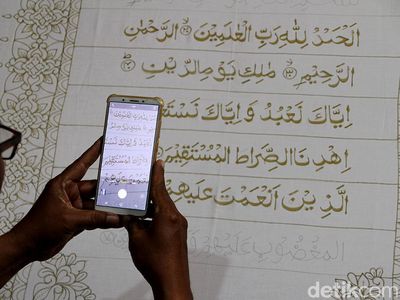 اَلْحَمْدُ لِلّٰهِ رَبِّ الْعٰلَمِيْنَ ۝ الرَّحْمٰنِ
الرَّحِيْمِ ۝ مٰلِكِ يَوْمِ الدِّيْنِ ۝
اِيَّاكَ نَعْبُدُ وَاِيَّاكَ
اِهْدِنَا الصِّرَاطَ الْمُسْتَقِيْمَ
الَّذِيْنَ اَنْعَمْتَ عَلَيْهِمْ
الْمَغْضُوْبِ عَلَيْهِمْ
detikcom